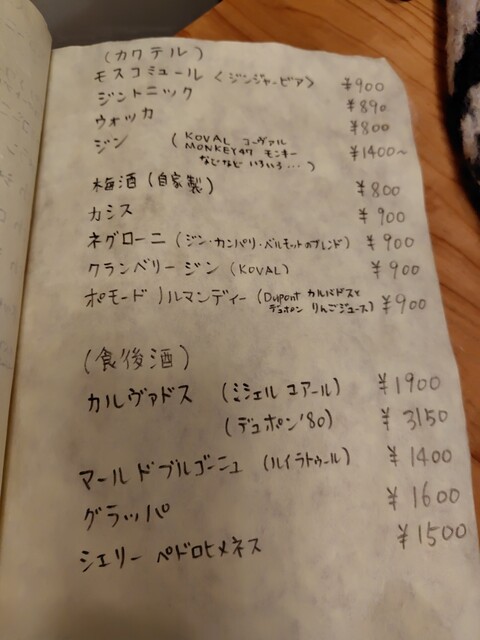 (カクテル)
モスコミュール <ジンジャービア> ¥900
ジントニック ¥890
ウォッカ ¥800
ジン (KOVAL コーヴァル ¥1400~
MONKEY47 モンキー
などなど いろいろ…)
梅酒 (自家製) ¥800
カシス ¥900
ネグローニ (ジン・カンパリ・ベルモットのブレンド) ¥900
クランベリー ジン (KOVAL) ¥900
ポモード ノルマンディー (Dupont カルバドスと ¥900
デュポン りんごジュース)
(食後酒)
カルヴァドス (ミシェル ユアール) ¥1900
(デュポン'80) ¥3150
マール ド ブルゴーニュ (ルイラトゥール) ¥1400
グラッパ ¥1600
シェリー ペドロヒメネス ¥1500